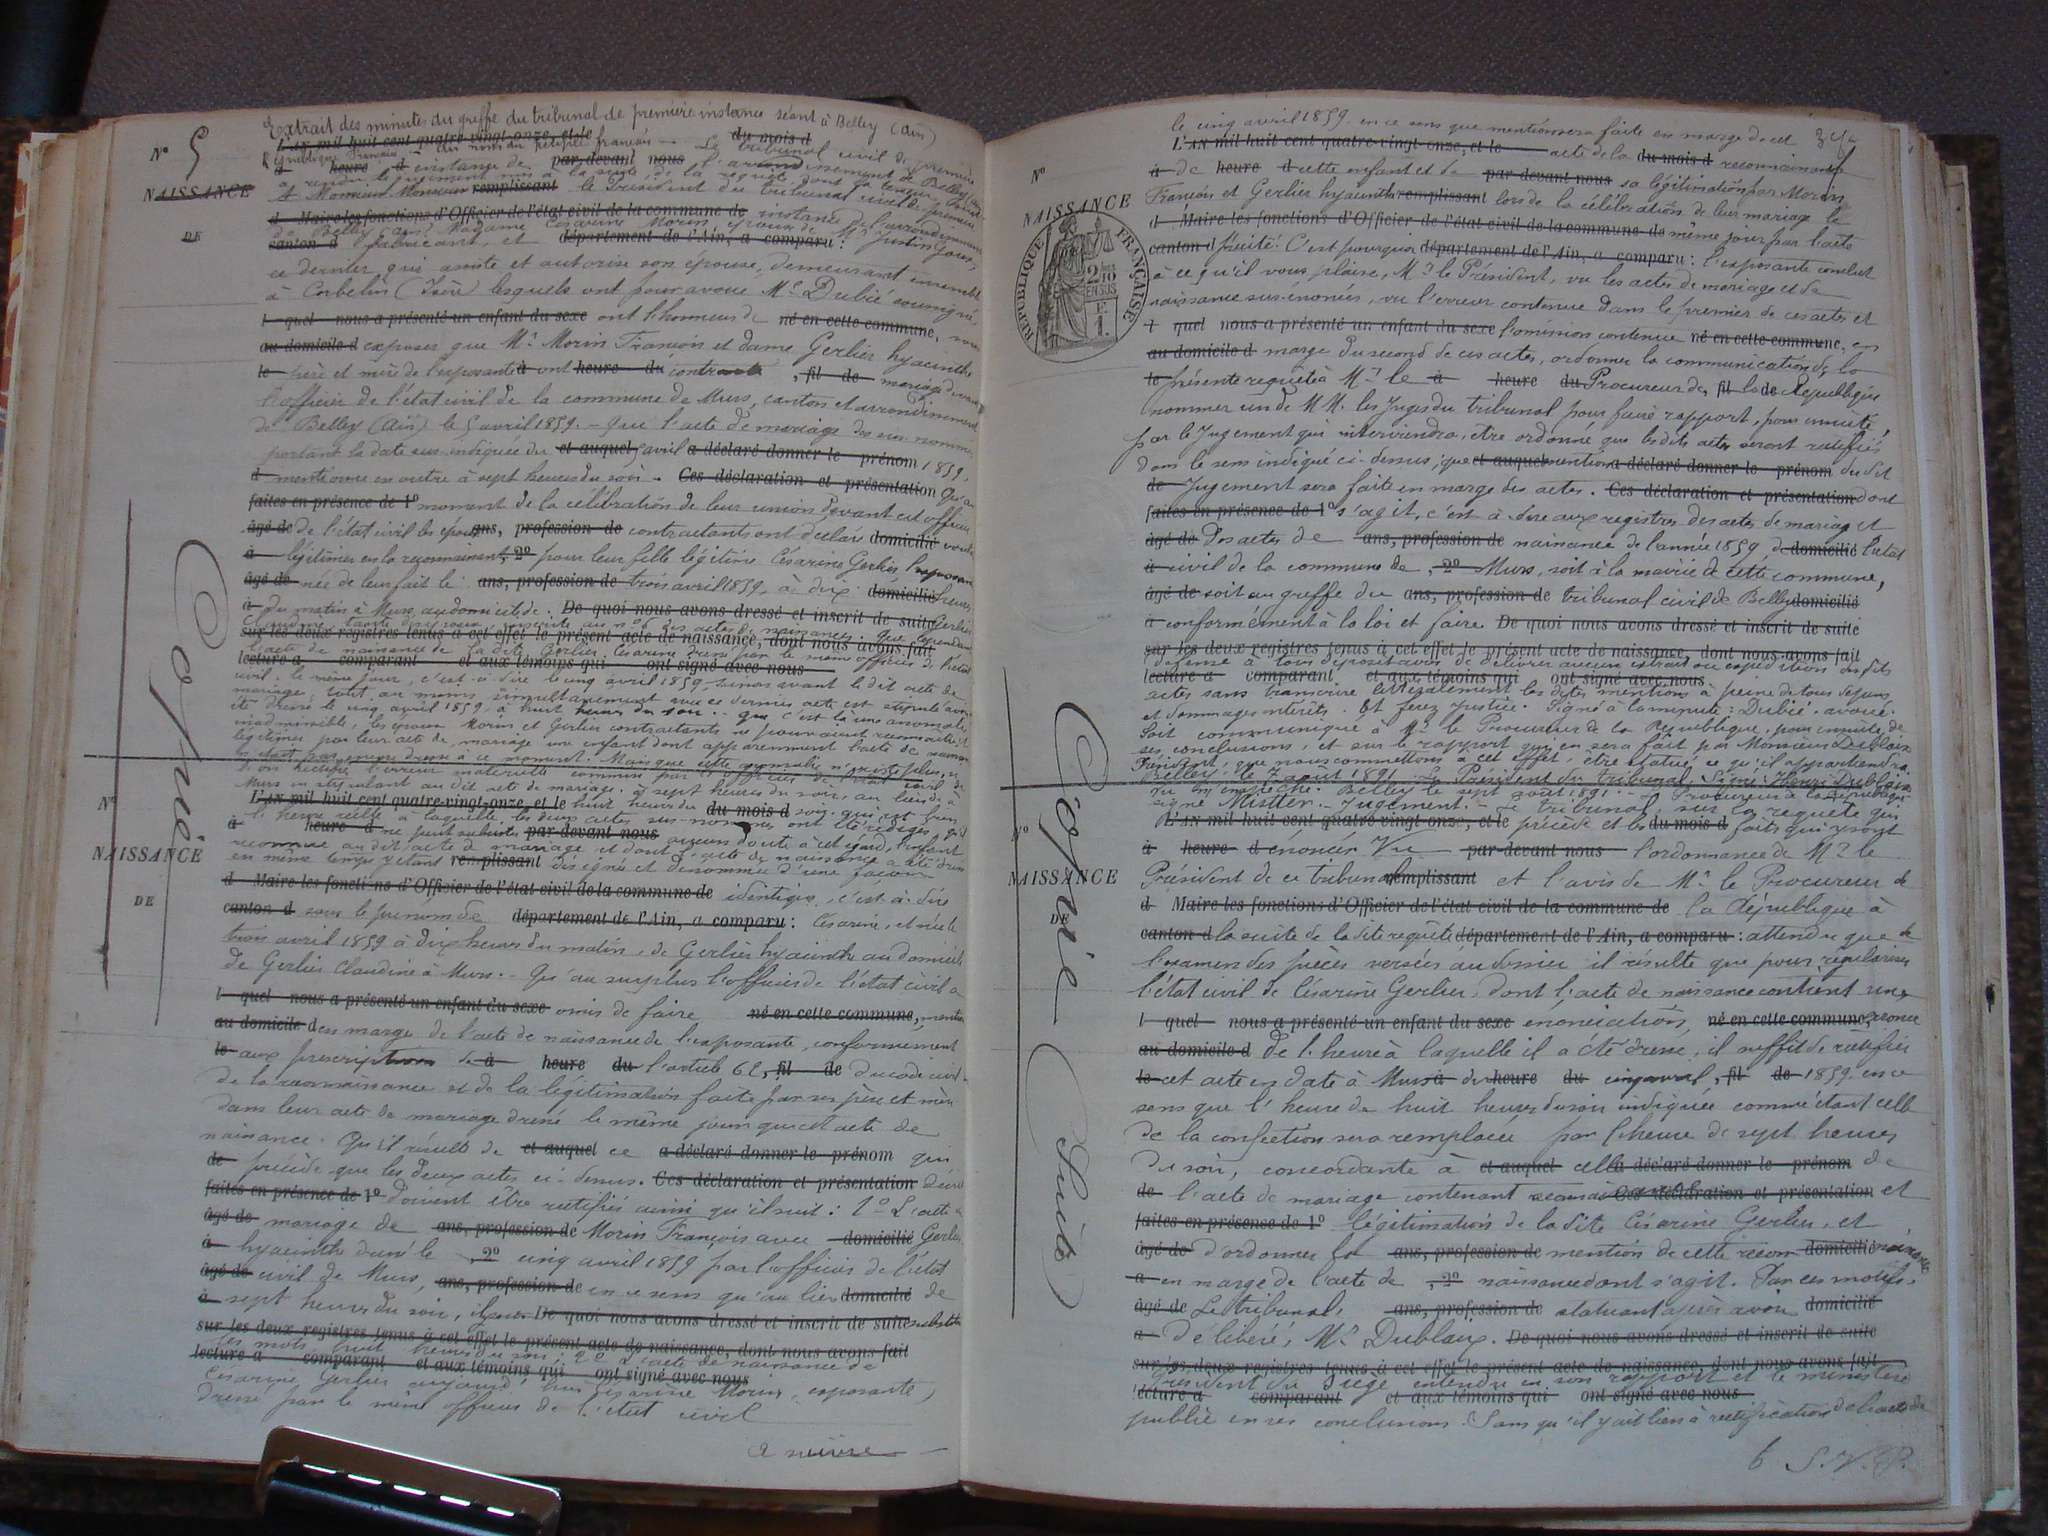 Extrait des minutes du greffe du tribunal de première instance séant à Belley (Ain)
N° 5
L'AN mil huit cent quatre-vingt-onze, et le du mois d
République Française Au nom du peuple français Le tribunal civil de première
à heure d instance de par-devant nous l'arrondissement de Belley
NAISSANCE
A Monsieur remplissant le Président du tribunal civil de première
DE
d Maire les fonctions d'Officier de l'état civil de la commune de instance de l'arrondissement
de Belley (Ain) Madame Césarine Morin épouse de Mr Justin
canton d fabricant, et département de l'Ain, a comparu :
ce dernier qui assiste et autorise son épouse, demeurant ensemble
à Corbelin (Isère) lesquels ont pour avoué Me Dubié soussigné,
l quel nous a présenté un enfant du sexe ont l'honneur de né en cette commune, vous
au domicile d exposer que Mr Morin François et dame Gerlier hyacinthe
le père et mère de l'exposante à ont heure du contracté , fil de mariage devant
l'officier de l'état civil de la commune de Murs, canton et arrondissement
de Belley (Ain) le 5 avril 1859. - que l'acte de mariage des sus-nommés
portant la date sus-indiquée du et auquel 5 avril a déclaré donner le prénom 1859,
d mentionne en outre à sept heures du soir - Ces déclaration et présentation Qu'au
faites en présence de 1° moment de la célébration de leur union devant cet officier
âgé de de l'état civil les époux ans, profession de contractants ont déclaré domicilié vouloir
à légitimer en la reconnaissant, 2° pour leur fille légitime Césarine Gerlier l'exposante
âgé de née de leur fait le ans, profession de trois avril 1859, à dix domicilié heures
à du matin à Murs, au domicile de De quoi nous avons dressé et inscrit de suite Gerlier
sur les deux registres tenus à cet effet le présent acte de naissance, dont nous avons fait
l'acte de naissance de la dite Gerlier Césarine dressé par le même officier de l'état
lecture a comparant et aux témoins qui ont signé avec nous
civil, le même jour, c'est-à-dire le cinq avril 1859, sinon avant le dit acte de
mariage, tout au moins simultanément avec ce dernier acte est stipulé avoir
été dressé le cinq avril 1859 à huit heures du soir - que c'est là une anomalie
inadmissible, les époux Morin et Gerlier contractants ne pouvaient reconnaître et
légitimer par leur acte de mariage une enfant dont apparemment l'acte de naissance
Copie
N°
L'AN mil huit cent quatre-vingt-onze, et le huit heures du du mois d soir qui est bien
à heure d ne peut subsister par-devant nous aucun doute à cet égard, l'enfant
NAISSANCE
en même temps y étant remplissant désignée et dénommée d'une façon
DE
d Maire les fonctions d'Officier de l'état civil de la commune de identique, c'est-à-dire
canton d sous le prénom de département de l'Ain, a comparu : Césarine, et née le
trois avril 1859 à dix heures du matin, de Gerlier hyacinthe au domicile
de Gerlier Claudine à Murs. - Qu'au surplus l'officier de l'état civil a
l quel nous a présenté un enfant du sexe omis de faire né en cette commune, mention
au domicile d en marge de l'acte de naissance de l'exposante, conformément
le aux prescriptions de à heure du l'article 62, fil de du code civil
de la reconnaissance et de la légitimation faite par ses père et mère
dans leur acte de mariage dressé le même jour que cet acte de
naissance. Qu'il résulte de et auquel ce a déclaré donner le prénom qui
de précède que les deux actes ci-dessus. Ces déclaration et présentation
faites en présence de 1° doivent être rectifiés ainsi qu'il suit : 1° L'acte de
âgé de mariage de ans, profession de Morin François avec domicilié Gerlier
à hyacinthe dressé le , 2° cinq avril 1859 par l'officier de l'état
âgé de civil de Murs, ans, profession de en ce sens qu'au lieu domicilié de
à sept heures du soir, il faut De quoi nous avons dressé et inscrit de suite substituer
sur les deux registres tenus à cet effet le présent acte de naissance, dont nous avons fait
les mots huit heures du soir; 2° L'acte de naissance de
lecture a comparant et aux témoins qui ont signé avec nous
Césarine Gerlier aujourd'hui Césarine Morin, exposante,
dressé par le même officier de l'état civil
à suivre
le cinq avril 1859 en ce sens que mention sera faite en marge de cet
N°
L'AN mil huit cent quatre-vingt-onze, et le acte de la du mois d reconnaissance
à de heure d cette enfant et de par-devant nous sa légitimation par Morin
NAISSANCE
François et Gerlier hyacinthe remplissant lors de la célébration de leur mariage le
d Maire les fonctions d'Officier de l'état civil de la commune de même jour par l'acte
canton d précité. C'est pourquoi département de l'Ain, a comparu : l'exposante conclut
RÉPUBLIQUE FRANÇAISE
à ce qu'il vous plaise, Mr le Président, vu les actes de mariage et de
naissance sus-énoncés, vu l'erreur contenue dans le premier de ces actes et
l quel nous a présenté un enfant du sexe l'omission contenue né en cette commune, en
au domicile d marge du second de ces actes, ordonner la communication de la
le présente requête à Mr le à heure du Procureur de fil la de République
nommer un de MM. les Juges du tribunal pour faire rapport, pour ensuite,
par le Jugement qui interviendra, être ordonné que lesdits actes seront rectifiés
dans le sens indiqué ci-dessus; que et auquel mention a déclaré donner le prénom du dit
de Jugement sera faite en marge des actes. Ces déclaration et présentation dont
faites en présence de 1° s'agit, c'est-à-dire aux registres des actes de mariage et
âgé de des actes de ans, profession de naissance de l'année 1859 de domicilié l'état
à civil de la commune de , 2° Murs, soit à la mairie de cette commune,
âgé de soit au greffe du ans, profession de tribunal civil de Belley domicilié
à conformément à la loi et faire De quoi nous avons dressé et inscrit de suite
sur les deux registres tenus à cet effet le présent acte de naissance, dont nous avons fait
défense à tous dépositaires de délivrer aucun extrait ou expédition desdits
lecture a comparant et aux témoins qui ont signé avec nous
actes sans transcrire littéralement les dites mentions à peine de tous dépens
et dommages intérêts. Et ferez Justice. Signé à la minute : Dubié avoué.
Soit communiqué à Mr le Procureur de la République, pour ensuite de
ses conclusions, et sur le rapport qui en sera fait par Monsieur Dublaix
Président, que nous commettons à cet effet, être statué ce qu'il appartiendra.
Belley le 7 août 1891. Le Président du tribunal, Signé : Henri Dublaix
Vu n'empêche. Belley le sept août 1891. Procureur de la République
signé Mistler. - Jugement. - Le tribunal sur la requête qui
Copie Suite
N°
L'AN mil huit cent quatre-vingt-onze, et le précède et les du mois d faits qui y sont
à heure d énoncés Vu par-devant nous l'ordonnance de Mr le
NAISSANCE
Président de ce tribunal remplissant et l'avis de Mr le Procureur de
DE
d Maire les fonctions d'Officier de l'état civil de la commune de la République à
canton d la suite de la dite requête département de l'Ain, a comparu : attendu que de
l'examen des pièces versées au dossier il résulte que pour régulariser
l'état civil de Césarine Gerlier, dont l'acte de naissance contient une
l quel nous a présenté un enfant du sexe énonciation, né en cette commune, erronée
au domicile d de l'heure à laquelle il a été dressé, il suffit de rectifier
le cet acte en date à Murs à du heure du cinq avril , fil de 1859 en ce
sens que l'heure de huit heures du soir indiquée comme étant celle
de la confection sera remplacée par l'heure de sept heures
du soir, concordante à et auquel celle a déclaré donner le prénom de
de l'acte de mariage contenant Ces déclaration et présentation et
faites en présence de 1° légitimation de la dite Césarine Gerlier, et
âgé de d'ordonner la ans, profession de mention de cette recon domicilié naissance
à en marge de l'acte de , 2° naissance dont s'agit. Par ces motifs,
âgé de Le tribunal, ans, profession de statuant après avoir domicilié
à délibéré, Mr Dublaix. De quoi nous avons dressé et inscrit de suite
sur les deux registres tenus à cet effet le présent acte de naissance, dont nous avons fait
Président du Siège entendu en son rapport et le ministère
lecture a comparant et aux témoins qui ont signé avec nous
public en ses conclusions. Sans qu'il y ait lieu à rectification de l'acte de
6 S.V.P.